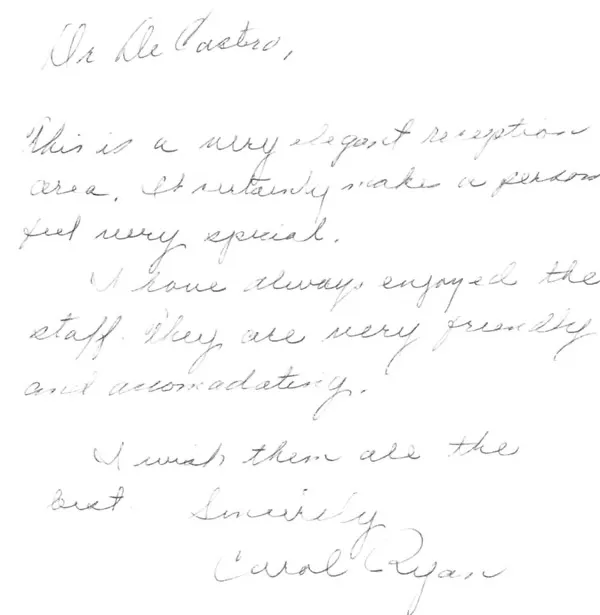 Dr De Castro,
This is a very elegant reception
area. It certainly make a person
feel very special.
I have always enjoyed the
staff. They are very friendly
and accomadating.
I wish them all the
best. Sincerely
Carol Ryan